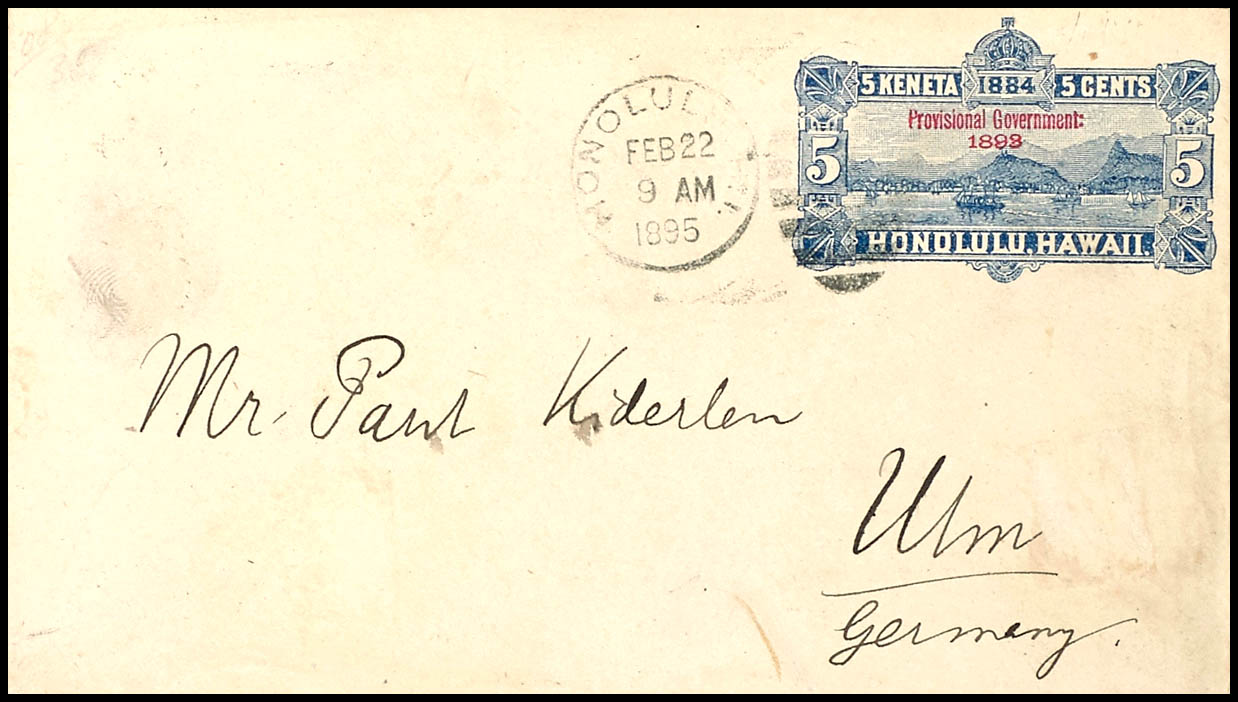 5 KENETA 1884 5 CENTS
Provisional Government:
1893
5 5
HONOLULU, HAWAII.
HONOLULU
FEB 22
9 AM
1895
Mr. Paul Kiderlen
Ulm
Germany.